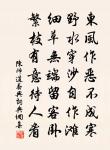 東風作惡不成寒
野水穿沙自作灘
細草無端留客卧
繁枝有意待人看
陳師道春興詞典網